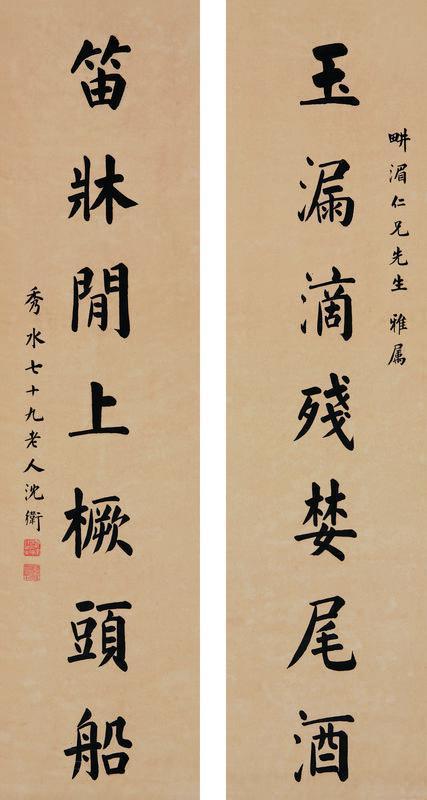 畊湄仁兄先生雅属
玉漏滴殘婪尾酒
笛牀閒上橛頭船
秀水七十九老人沈衛